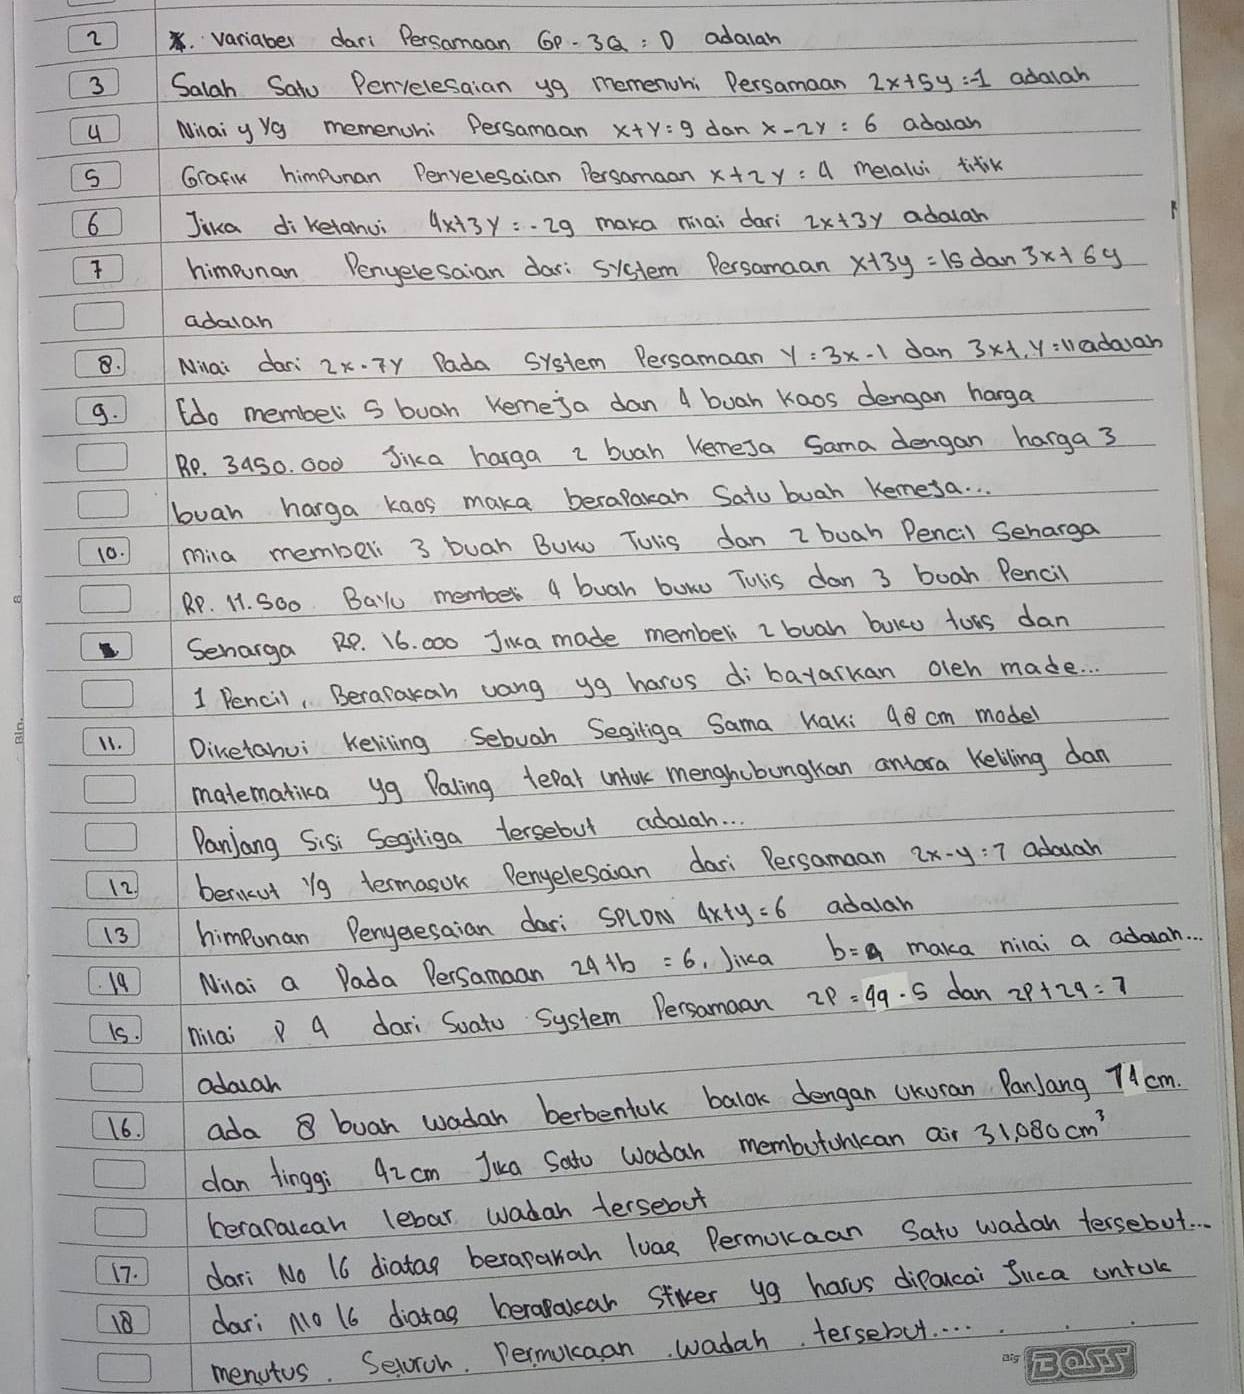 2 x. variaber dari Persamaan 6P - 3Q = 0 adalah
3 Salah Satu Penyelesaian yg memenuhi Persamaan 2x + 5y = -1 adalah
4 Nilai y yg memenuhi Persamaan x + y = 9 dan x - 2y = 6 adalah
5 Grafik himpunan Penyelesaian Persamaan x + 2y = 4 melalui titik
6 Jika di ketahui 4x + 3y = -29 maka nilai dari 2x + 3y adalah
7 himpunan Penyelesaian dari System Persamaan x + 3y = 15 dan 3x + 6y
adalah
8. Nilai dari 2x - 7y Pada System Persamaan y = 3x - 1 dan 3x + y = 11 adalah
9. Edo membeli 5 buah kemeja dan 4 buah kaos dengan harga
RP. 3450.000 Jika harga 2 buah kemeja Sama dengan harga 3
buah harga kaos maka berapakah Satu buah kemeja...
10. mila membeli 3 buah Buku Tulis dan 2 buah Pencil Seharga
RP. 11.500 Bayu membeli 4 buah buku Tulis dan 3 buah Pencil
Seharga RP. 16.000 Jika made membeli 2 buah buku tulis dan
1 Pencil, Berapakah uang yg harus di bayarkan oleh made...
11. Diketahui keliling Sebuah Segitiga Sama kaki 48 cm model
matematika yg Paling tepat untuk menghubungkan antara keliling dan
Panjang Sisi Segitiga tersebut adalah...
12. berikut yg termasuk Penyelesaian dari Persamaan 2x - y = 7 adalah
13 himpunan Penyelesaian dari SPLDN 4x + y = 6 adalah
14 Nilai a Pada Persamaan 2a + b = 6. Jika b = 4 maka nilai a adalah...
15. nilai P q dari Suatu System Persamaan 2P = 4q - 5 dan 2P + 2q = 7
adalah
16. ada 8 buah wadah berbentuk balok dengan Ukuran Panjang 74 cm.
dan tinggi 42 cm Jika Satu Wadah membutuhkan air 31,080 cm³
berapakah lebar wadah tersebut
17. dari No 16 diatas berapakah luas Permukaan Satu wadah tersebut...
18 dari No 16 diatas berapakah Stiker yg harus dipakai Jika untuk
menutus. Seluruh. Permukaan. wadah. tersebut....
Big BOSS